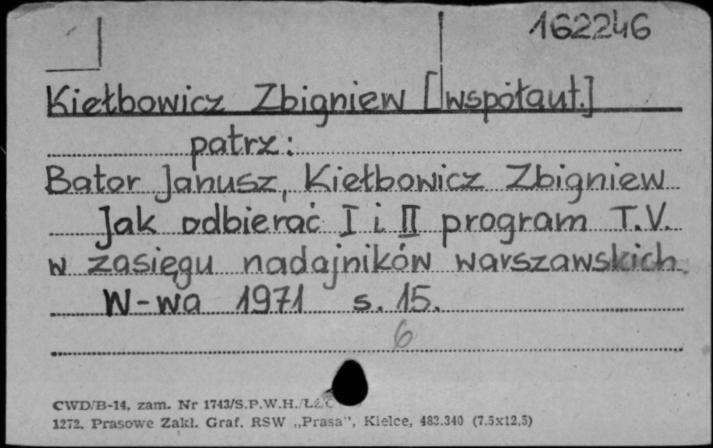 162246
Kiełbowicz Zbigniew [współaut.]
patrz:
Bator Janusz, Kiełbowicz Zbigniew
Jak odbierać I i II program T.V.
w zasięgu nadajników warszawskich.
W-wa 1971 s. 15.
6
CWD/B-14, zam. Nr 1743/S.P.W.H./ŁŻ
1272. Prasowe Zakł. Graf. RSW „Prasa", Kielce, 483.340 (7,5x12,5)